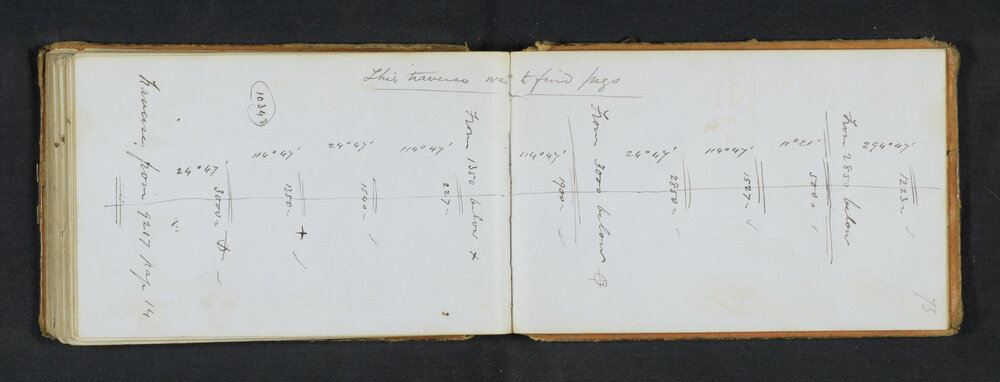 This traverse was to find pegs
73
1223 =
294°47'
From 2850 below
500 =
1527 =
114°47'
2850 =
24°47'
From 3000 below
1900 =
114°47'
From 1350 below x
227 =
114°47'
1540 =
24°47'
1350 = +
114°47'
10343
3000 =
24°47'
Traverse from 9217 pag 14